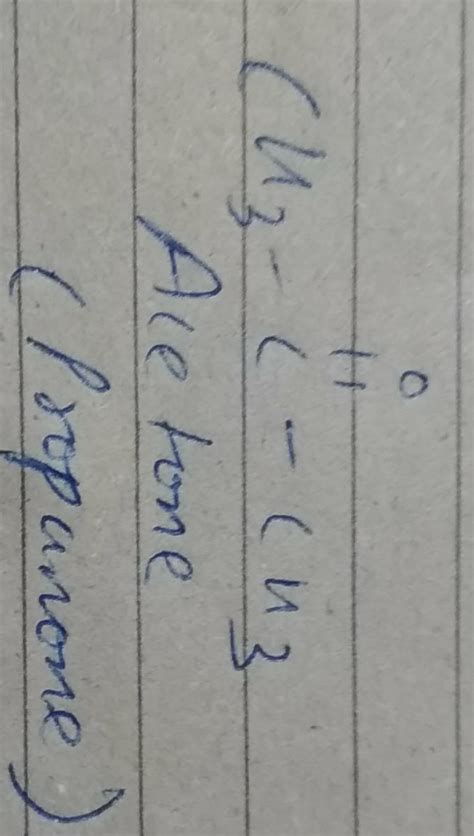 O
||
CH3 - C - CH3
Acetone
(Propanone)